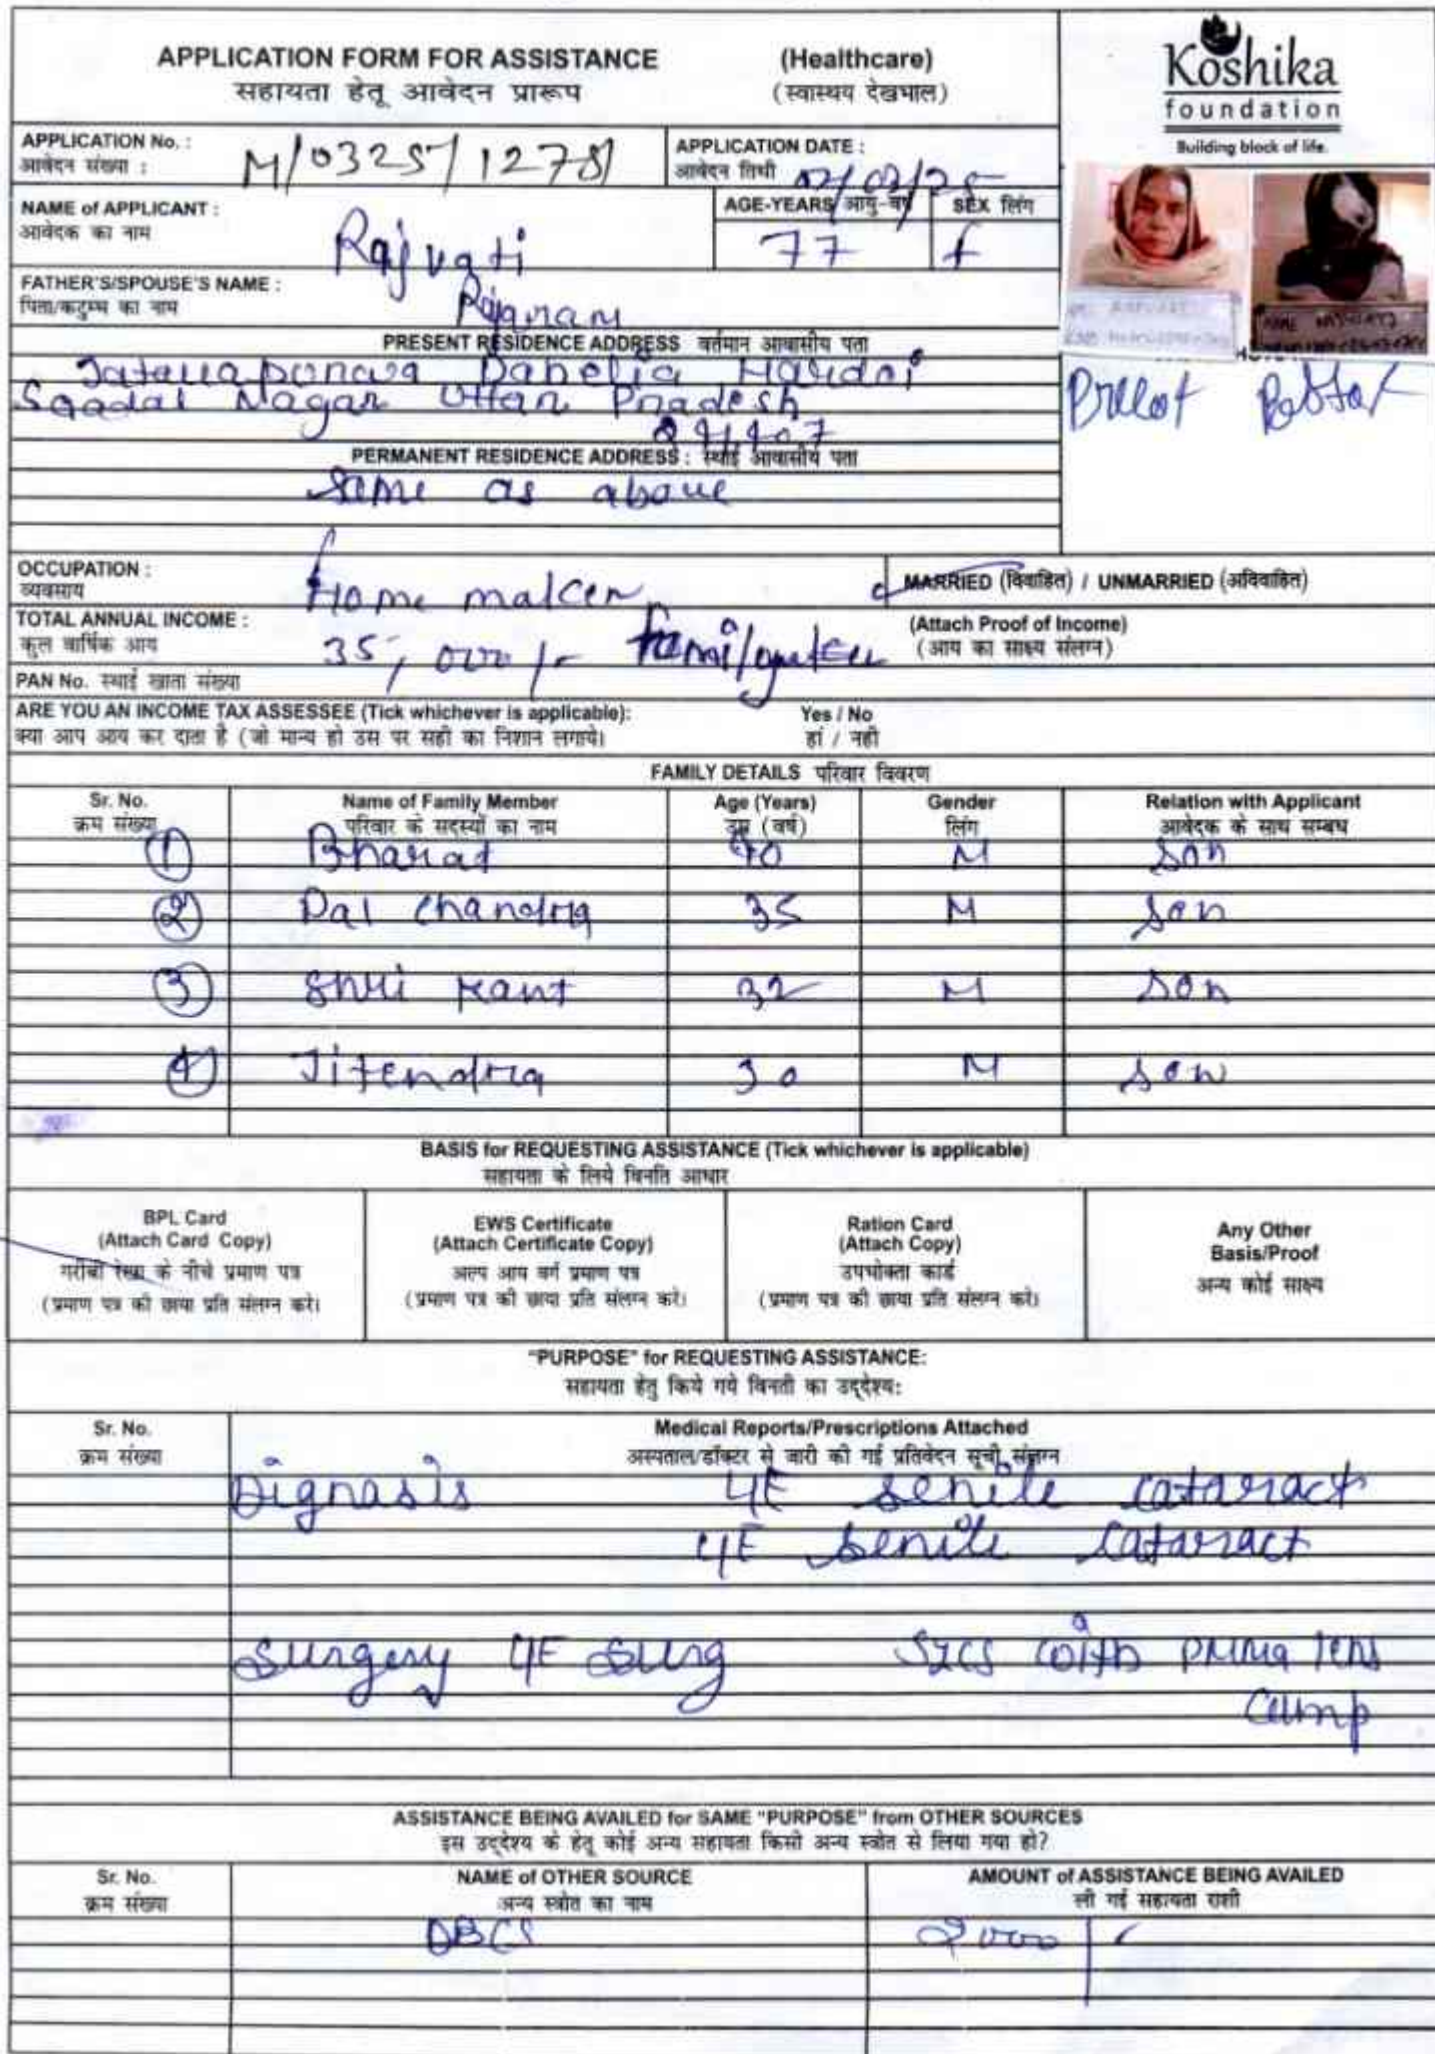 APPLICATION FORM FOR ASSISTANCE (Healthcare)
सहायता हेतू आवेदन प्रारूप (स्वास्थय देखभाल)
Koshika
foundation
Building block of life.
APPLICATION No. : M/0325/1278
आवेदन संख्या :
APPLICATION DATE :
आवेदन तिथी
NAME of APPLICANT : Rajvati
आवेदक का नाम
AGE-YEARS आयु-वर्ष 77
SEX लिंग f
FATHER'S/SPOUSE'S NAME : Rajaram
पिता/कटुम्ब का नाम
PRESENT RESIDENCE ADDRESS वर्तमान आवासीय पता
Dahelia Hardoi
Nagar Uttar Pradesh
PERMANENT RESIDENCE ADDRESS : स्थाई आवासीय पता
Same as above
OCCUPATION : Home maker
व्यवसाय
MARRIED (विवाहित) / UNMARRIED (अविवाहित)
TOTAL ANNUAL INCOME : 35,000/-
कुल वार्षिक आय
(Attach Proof of Income)
(आय का साक्ष्य संलग्न)
PAN No. स्थाई खाता संख्या
ARE YOU AN INCOME TAX ASSESSEE (Tick whichever is applicable): Yes / No
क्या आप आय कर दाता है (जो मान्य हो उस पर सही का निशान लगाये। हां / नही
FAMILY DETAILS परिवार विवरण
Sr. No. Name of Family Member Age (Years) Gender Relation with Applicant
क्रम संख्या परिवार के सदस्यों का नाम उम्र (वर्ष) लिंग आवेदक के साथ सम्बध
1 Bharat 40 M Son
2 Pal Chandra 35 M Son
3 Shri Kant 32 M Son
4 Jitendra 30 M Son
BASIS for REQUESTING ASSISTANCE (Tick whichever is applicable)
सहायता के लिये विनति आधार
BPL Card
(Attach Card Copy)
गरीबी रेखा के नीचे प्रमाण पत्र
(प्रमाण पत्र की छाया प्रति संलग्न करे।
EWS Certificate
(Attach Certificate Copy)
अल्प आय वर्ग प्रमाण पत्र
(प्रमाण पत्र की छाया प्रति संलग्न करे।
Ration Card
(Attach Copy)
उपभोक्ता कार्ड
(प्रमाण पत्र की छाया प्रति संलग्न करे।
Any Other
Basis/Proof
अन्य कोई साक्ष्य
"PURPOSE" for REQUESTING ASSISTANCE:
सहायता हेतु किये गये विनती का उद्देश्य:
Sr. No. Medical Reports/Prescriptions Attached
क्रम संख्या अस्पताल/डॉक्टर से जारी की गई प्रतिवेदन सूची संलग्न
Dignasis LE senile cataract
LE senile cataract
Surgery LE Surg SICS with PMMA lens
ASSISTANCE BEING AVAILED for SAME "PURPOSE" from OTHER SOURCES
इस उद्देश्य के हेतू कोई अन्य सहायता किसी अन्य स्त्रोत से लिया गया हो?
Sr. No. NAME of OTHER SOURCE AMOUNT of ASSISTANCE BEING AVAILED
क्रम संख्या अन्य स्त्रोत का नाम ली गई सहायता राशी
DBCS 2000/-